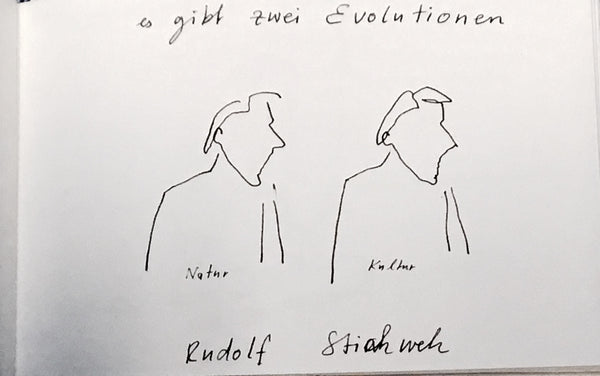 es gibt zwei Evolutionen
Natur Kultur
Rudolf Stichweh